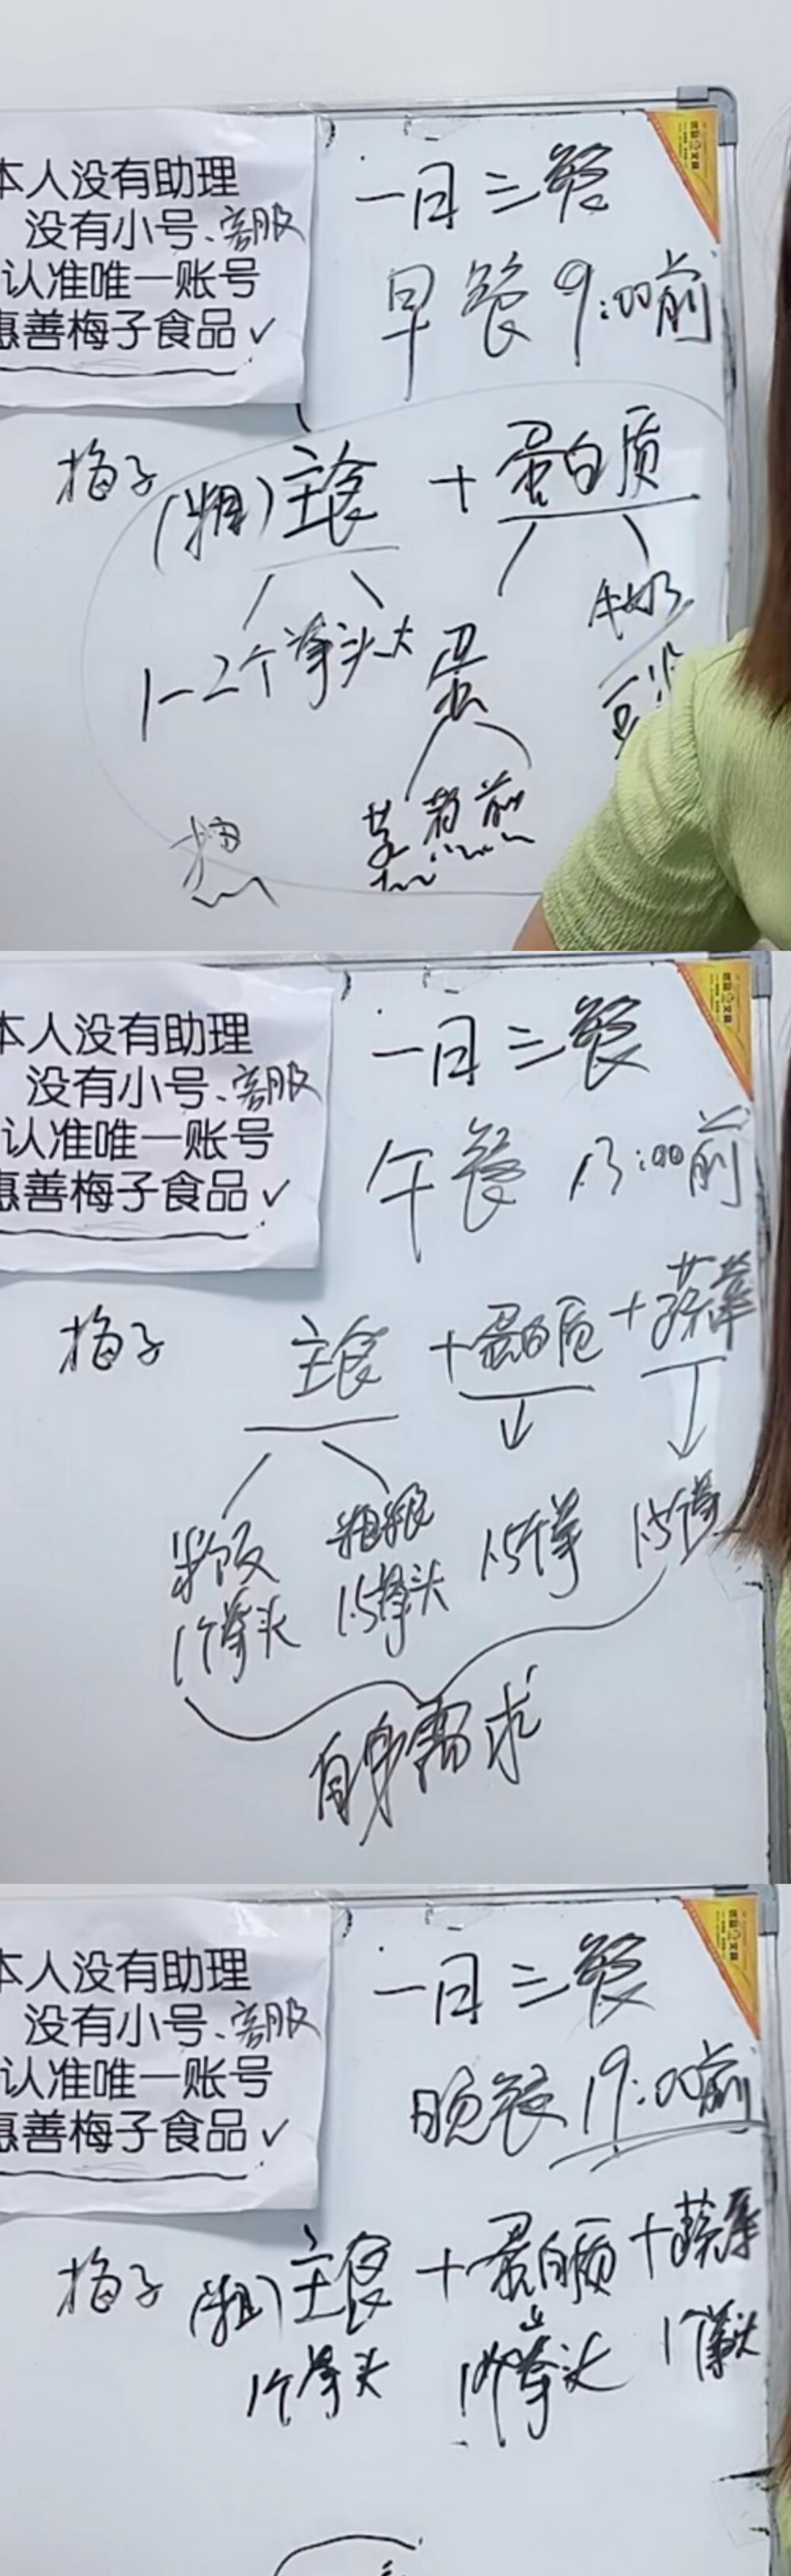 本人没有助理
没有小号、客服
认准唯一账号
惠善梅子食品✓
一日三餐
早餐 9:00前
梅子
(粗)主食 + 蛋白质
1-2个拳头大
蛋
牛奶
豆浆
蒸 煮 煎
本人没有助理
没有小号、客服
认准唯一账号
惠善梅子食品✓
一日三餐
午餐 13:00前
梅子
主食 + 蛋白质 + 蔬菜
米饭
1个拳头
粗粮
1.5拳头
1.5个拳
1.5个拳
自身需求
本人没有助理
没有小号、客服
认准唯一账号
惠善梅子食品✓
一日三餐
晚餐 19:00前
梅子
(粗)主食 + 蛋白质 + 蔬菜
1个拳头
1个拳头
1个拳头